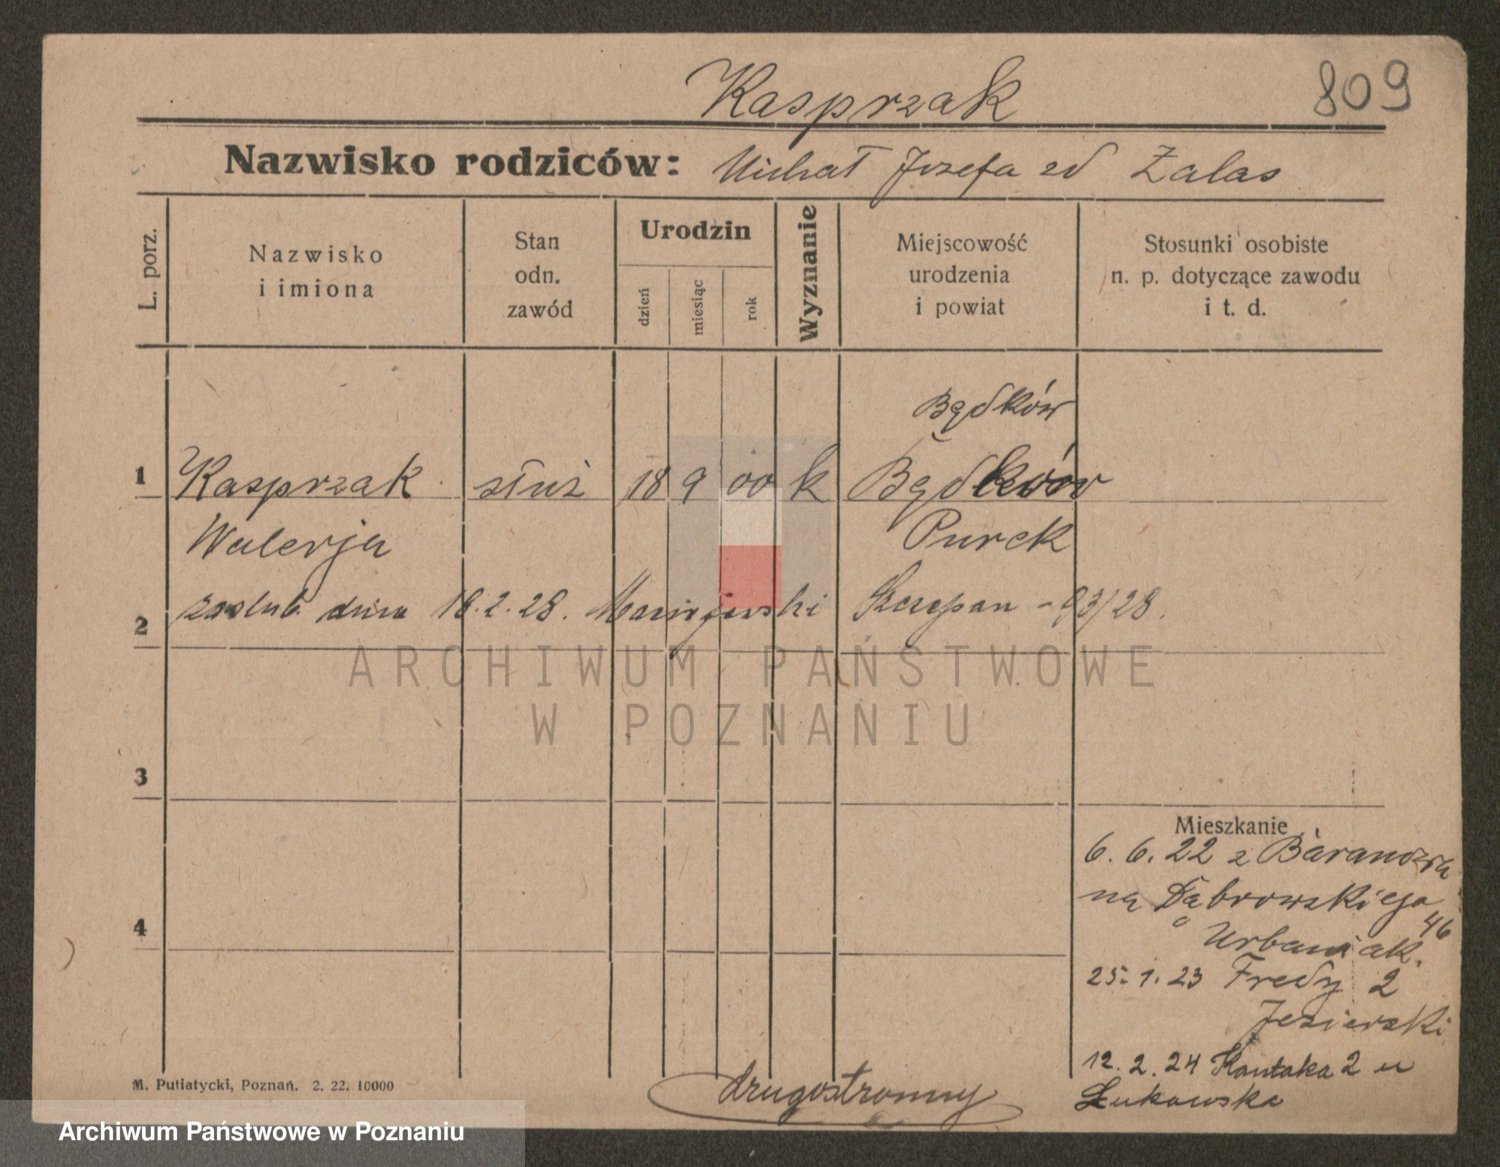 Kasprzak
809
Nazwisko rodziców: Michał Jozefa zd Zalas
L. porz.
Nazwisko
i imiona
Stan
odn.
zawód
Urodzin
dzień
miesiąc
rok
Wyznanie
Miejscowość
urodzenia
i powiat
Stosunki osobiste
n. p. dotyczące zawodu
i t. d.
Bądków
1 Kasprzak służ 18 9 00 k Bądków
Walerja Purek
zaślub. dnia 18.2.28. Szczepan - 93/28.
2
ARCHIWUM PAŃSTWOWE
W POZNANIU
3
Mieszkanie
6.6.22 z
na Dąbrowskiego 46
Urbaniak.
4
25.1.23 Fredy 2
Jezierski
12.2.24 Kantaka 2 u
Łukowska
M. Putiatycki, Poznań. 2. 22. 10000
drugostronny
Archiwum Państwowe w Poznaniu